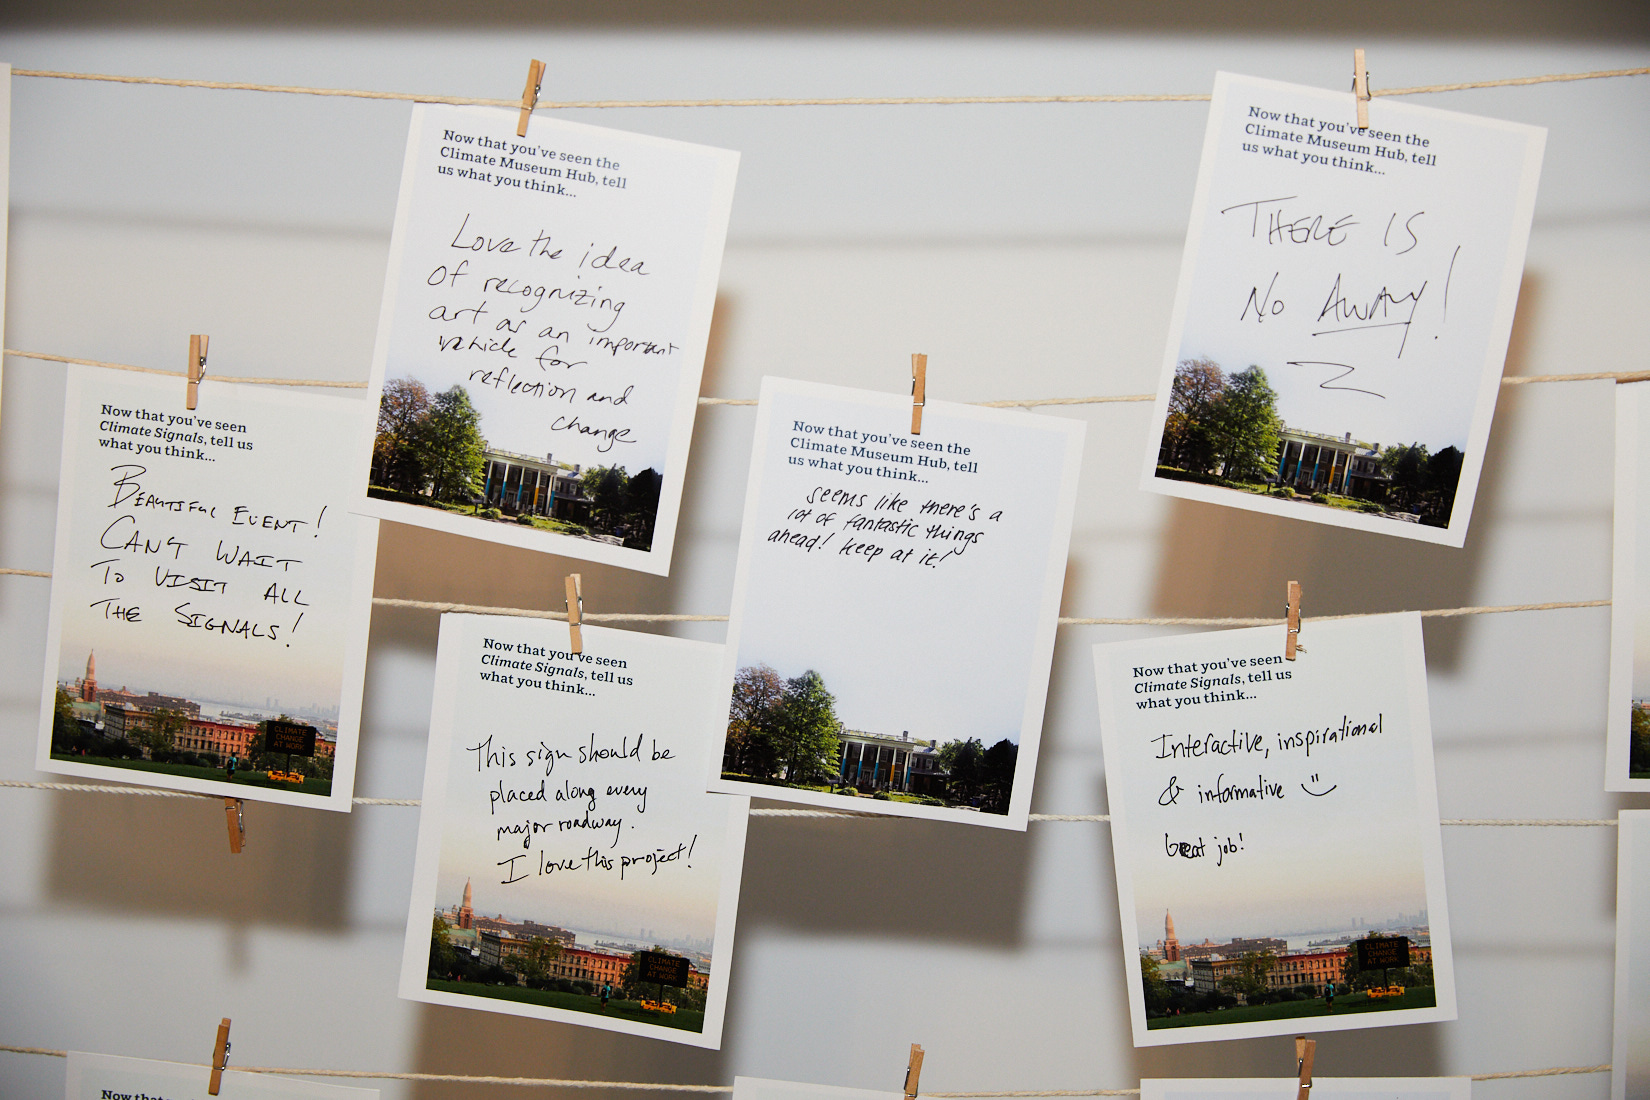 Now that you've seen the
Climate Museum Hub, tell
us what you think...
Love the idea
of recognizing
art as an important
vehicle for
reflection and
change
Now that you've seen the
Climate Museum Hub, tell
us what you think...
THERE IS
NO AWAY!
Now that you've seen
Climate Signals, tell us
what you think...
BEAUTIFUL EVENT!
CAN'T WAIT
TO VISIT ALL
THE SIGNALS!
CLIMATE
CHANGE
AT WORK
Now that you've seen the
Climate Museum Hub, tell
us what you think...
seems like there's a
lot of fantastic things
ahead! keep at it!
Now that you've seen
Climate Signals, tell us
what you think...
This sign should be
placed along every
major roadway.
I love this project!
CLIMATE
CHANGE
AT WORK
Now that you've seen
Climate Signals, tell us
what you think...
Interactive, inspirational
& informative
Great job!
CLIMATE
CHANGE
AT WORK
Now that